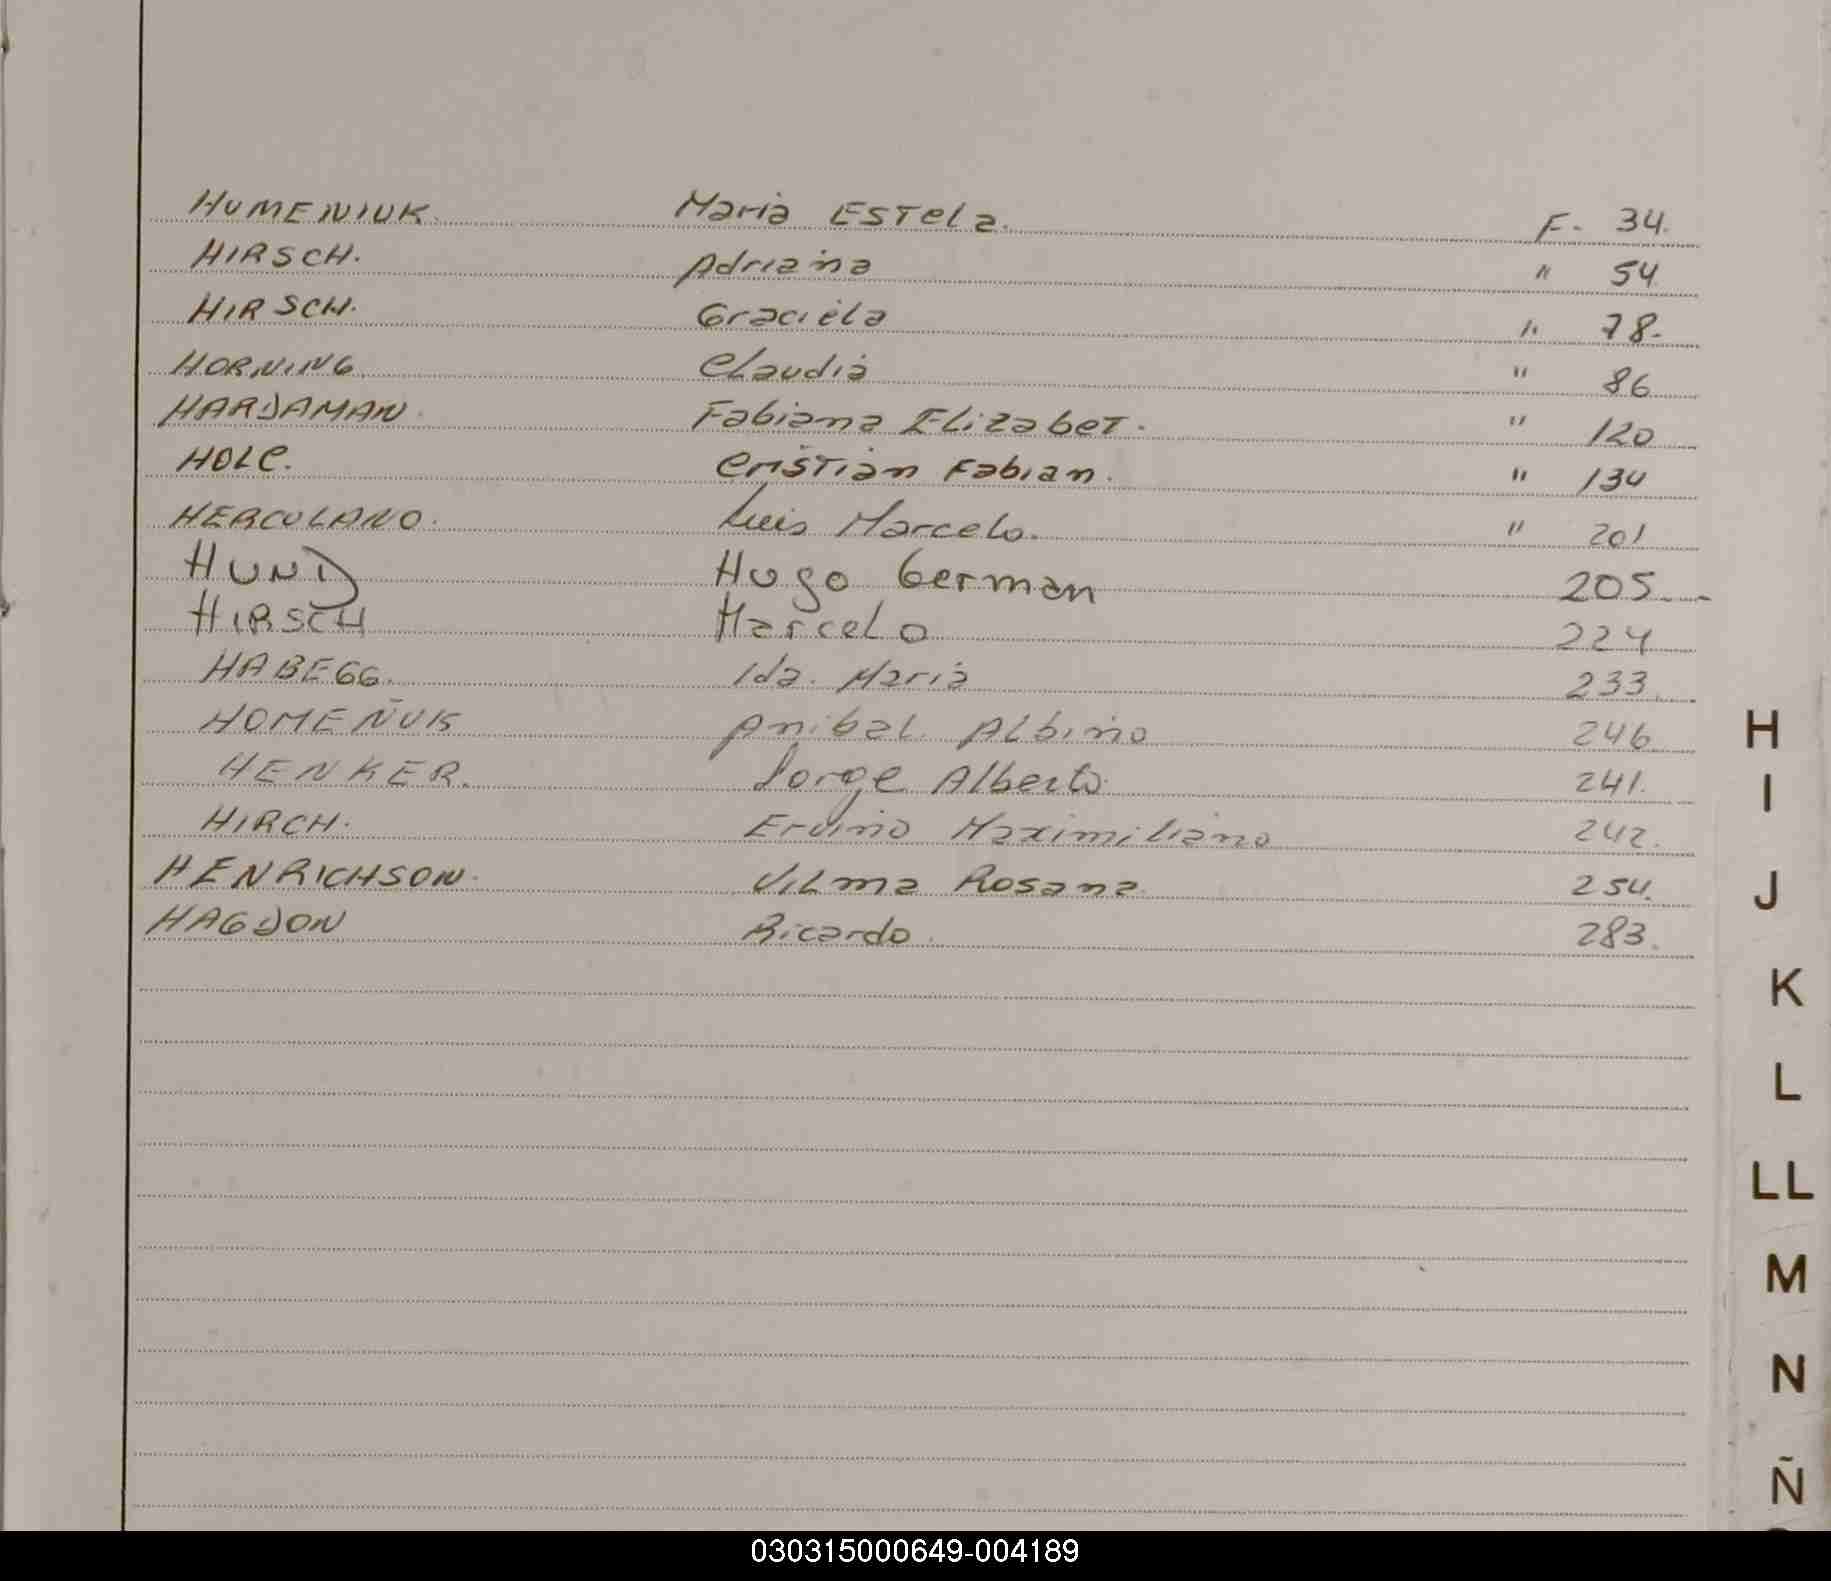 HUMENIUK. Maria Estela. F. 34.
HIRSCH. Adriana " 54.
HIRSCH. Graciela " 78.
HORNING. Claudia " 86
HARDAMAN. Fabiana Elizabet. " 120
HOLC. Cristian Fabian. " 134
HERCULANO. Luis Marcelo. " 201
HUND Hugo German 205
HIRSCH Marcelo 224
HABEGG. Ida. Maria 233
HOMEÑUK Anibal Albino 246
HENKER. Jorge Alberto 241.
HIRCH. Ervino Maximiliano 242.
HENRICHSON. Vilma Rosana 254.
HAGDON Ricardo. 283.
H
I
J
K
L
LL
M
N
Ñ
030315000649-004189